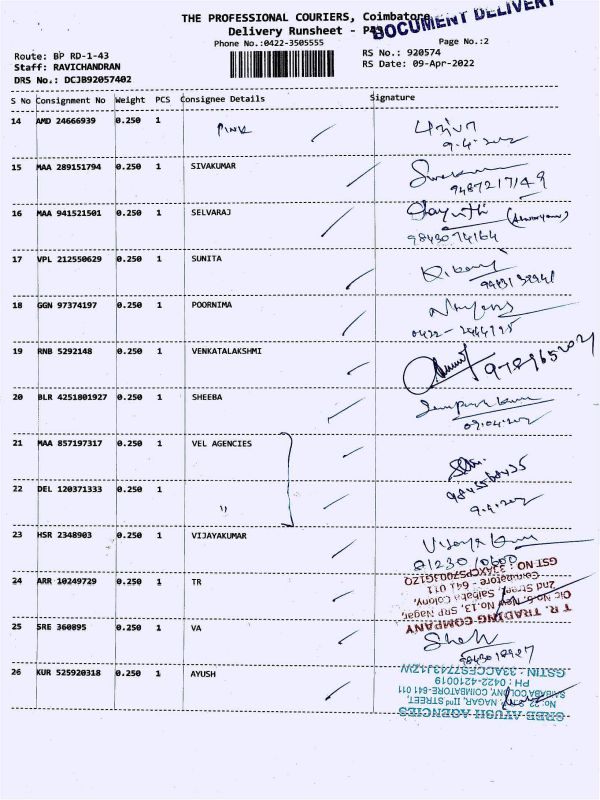 THE PROFESSIONAL COURIERS, Coimbatore
DOCUMENT DELIVERY
Delivery Runsheet - P43
Phone No.:0422-3505555
Page No.:2
Route: BP RD-1-43
RS No.: 920574
Staff: RAVICHANDRAN
RS Date: 09-Apr-2022
DRS No.: DCJB92057402
S No Consignment No Weight PCS Consignee Details Signature
14 AMD 24666939 0.250 1 PINK
15 MAA 289151794 0.250 1 SIVAKUMAR
9487217149
16 MAA 941521501 0.250 1 SELVARAJ
9843074164
17 VPL 212550629 0.250 1 SUNITA
18 GGN 97374197 0.250 1 POORNIMA
19 RNB 5292148 0.250 1 VENKATALAKSHMI
20 BLR 4251801927 0.250 1 SHEEBA
21 MAA 857197317 0.250 1 VEL AGENCIES
22 DEL 120371333 0.250 1 "
23 HSR 2348903 0.250 1 VIJAYAKUMAR
24 ARR 10249729 0.250 1 TR
T. R. TRADING COMPANY
Old No.5, New No.13, SRP Nagar,
2nd Street, Saibaba Colony,
Coimbatore - 641 011
GST NO : 33AXCPS7003G1ZQ
25 SRE 360895 0.250 1 VA
26 KUR 525920318 0.250 1 AYUSH
SREE AYUSH AGENCIES
No: 22, S.R.P. NAGAR, IInd STREET,
SAIBABA COLONY, COIMBATORE-641 011
PH : 0422-4210019
GSTIN : 33ACCES7743J1ZW